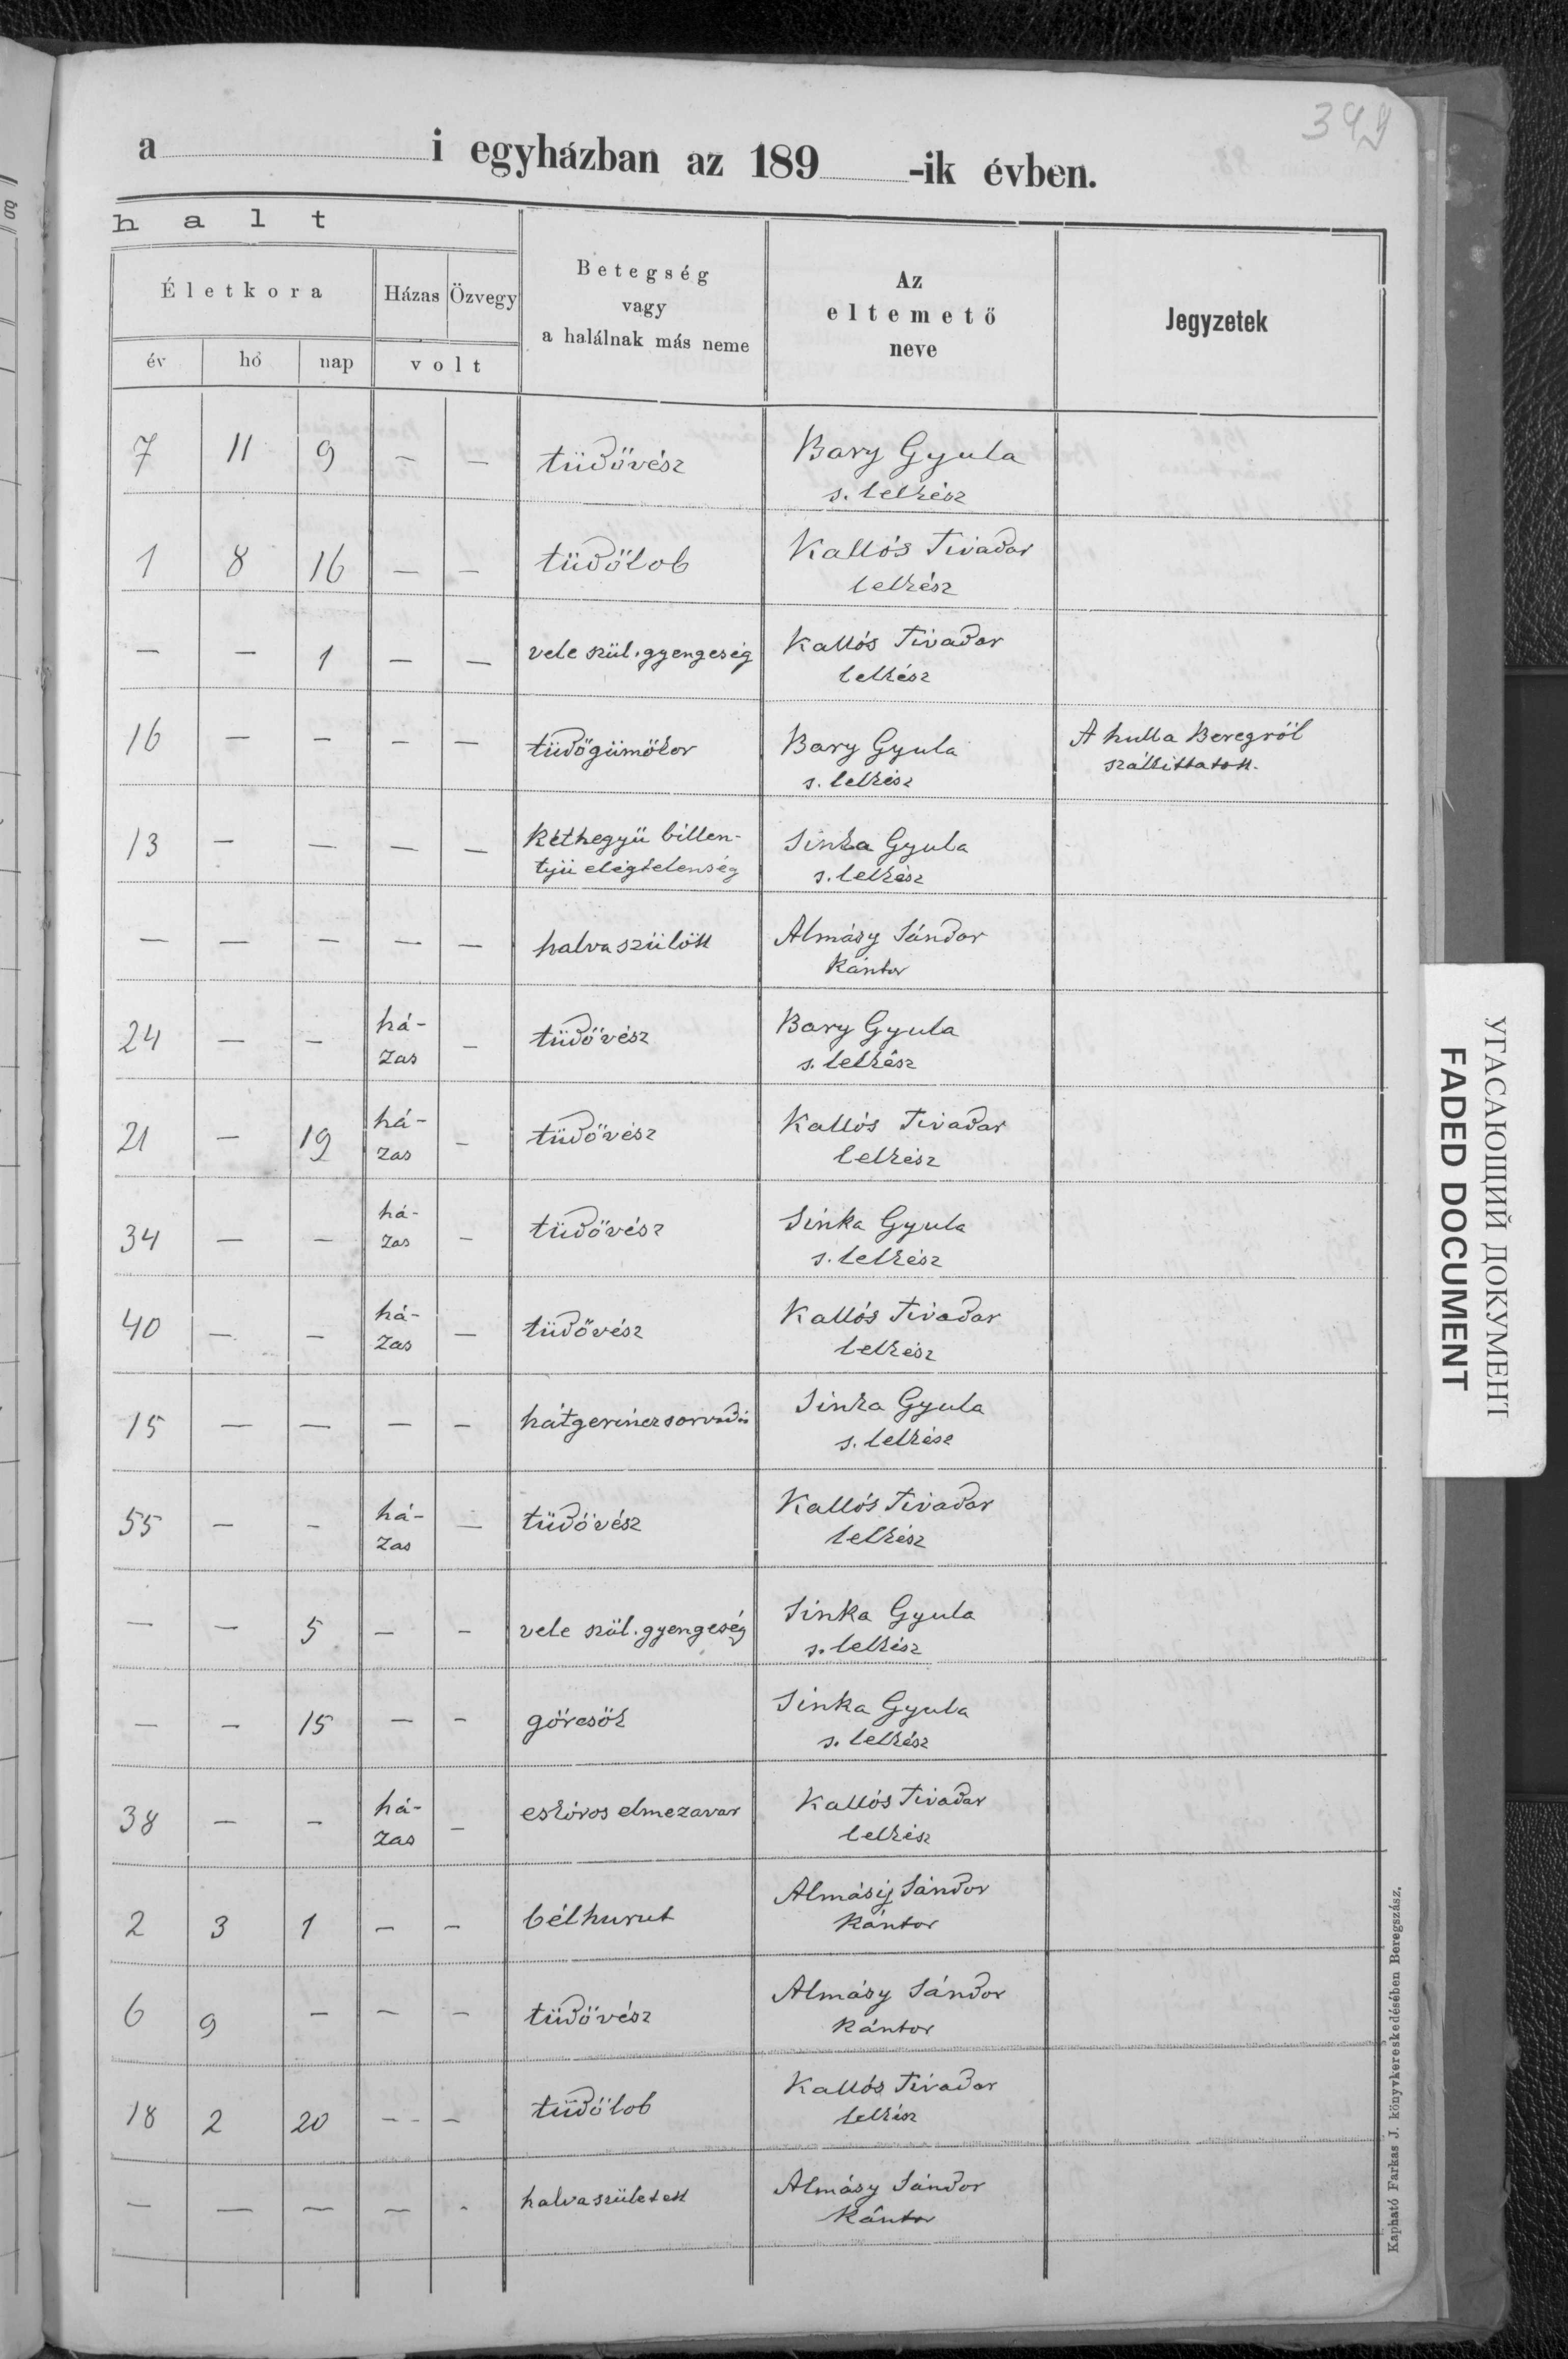 a i egyházban az 189 -ik évben.
halt
Életkora Házas Özvegy Betegség vagy a halálnak más neme Az eltemető neve Jegyzetek
év hó nap volt
7 11 9 — — tüdővész Bary Gyula
s. lelkész
1 8 16 — — tüdőlob Kallós Tivadar
lelkész
— — 1 — — vele szül. gyengeség Kallós Tivadar
lelkész
16 — — — — tüdőgümőkor Bary Gyula A hulla Beregről
s. lelkész szállittatott.
13 — — — — kéthegyü billen- Sinka Gyula
tyü elégtelenség s. lelkész
— — — — — halva szülött Almásy Sándor
kántor
24 — — há- — tüdővész Bary Gyula
zas s. lelkész
21 — 19 há- — tüdővész Kallós Tivadar
zas lelkész
34 — — há- — tüdővész Sinka Gyula
zas s. lelkész
40 — — há- — tüdővész Kallós Tivadar
zas lelkész
15 — — — — hátgerincz sorvadás Sinka Gyula
s. lelkész
55 — — há- — tüdővész Kallós Tivadar
zas lelkész
— — 5 — — vele szül. gyengeség Sinka Gyula
s. lelkész
— — 15 — — görcsök Sinka Gyula
s. lelkész
38 — — há- — eskóros elmezavar Kallós Tivadar
zas lelkész
2 3 1 — — bélhurut Almásy Sándor
kántor
6 9 — — — tüdővész Almásy Sándor
kántor
18 2 20 — — tüdőlob Kallós Tivadar
lelkész
— — — — — halva született Almásy Sándor
kántor
Kapható Farkas J. könyvkereskedésében Beregszász.
УГАСАЮЩИЙ ДОКУМЕНТ
FADED DOCUMENT